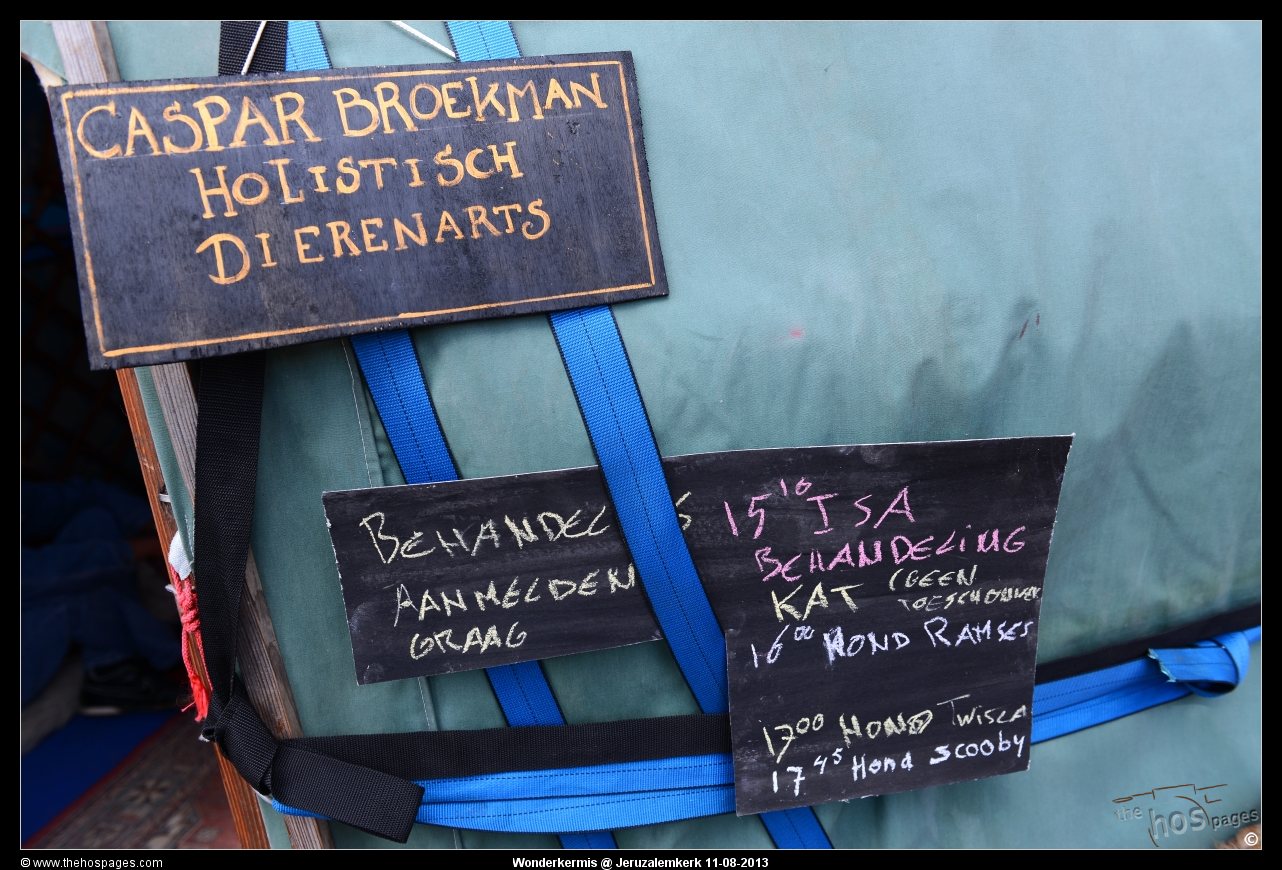 CASPAR BROEKMAN
HOLISTISCH
DIERENARTS
AANMELDEN
GRAAG
15 10 ISA
BEHANDELING
KAT (GEEN
TOESCHOUWER
16 00 HOND RAMSES
17 00 HOND TWISCA
17 45 Hond SCOOBY
the hos pages
©
© www.thehospages.com
Wonderkermis @ Jeruzalemkerk 11-08-2013